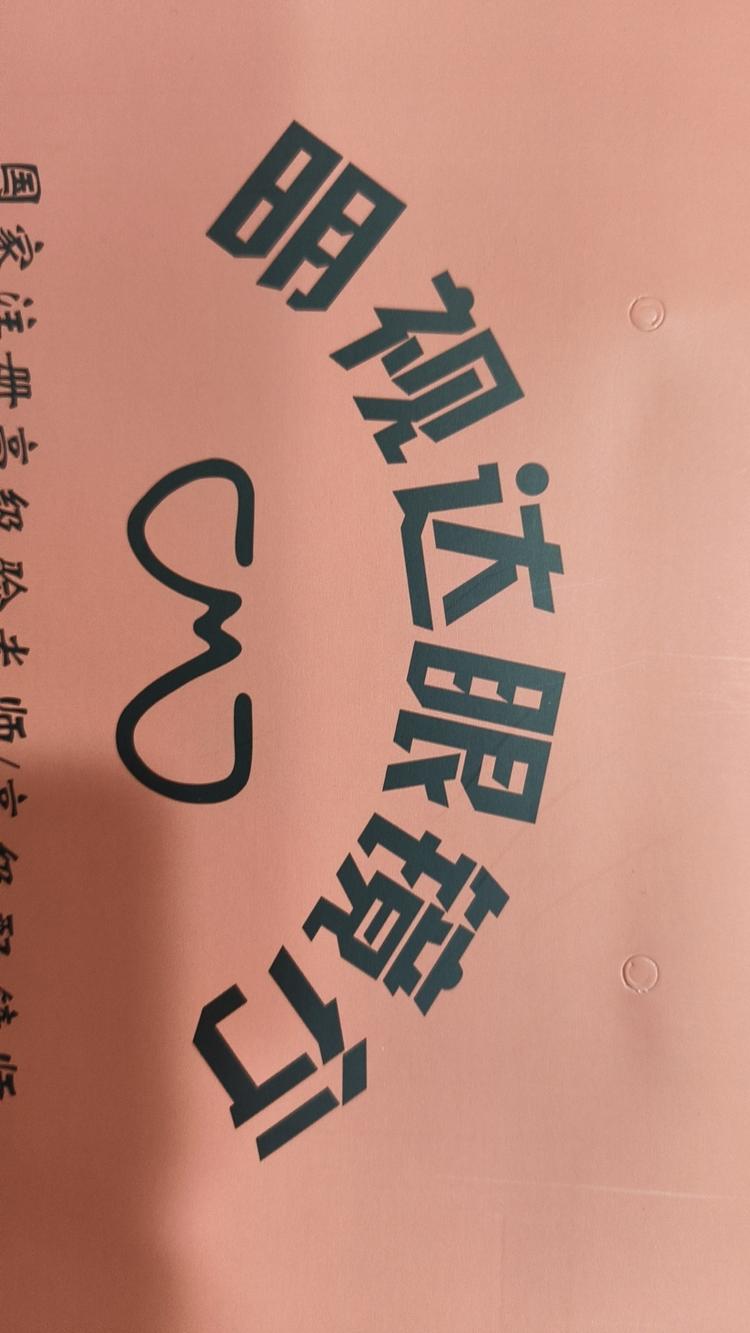 明视达眼镜行
国家注册高级验光师/高级配镜师